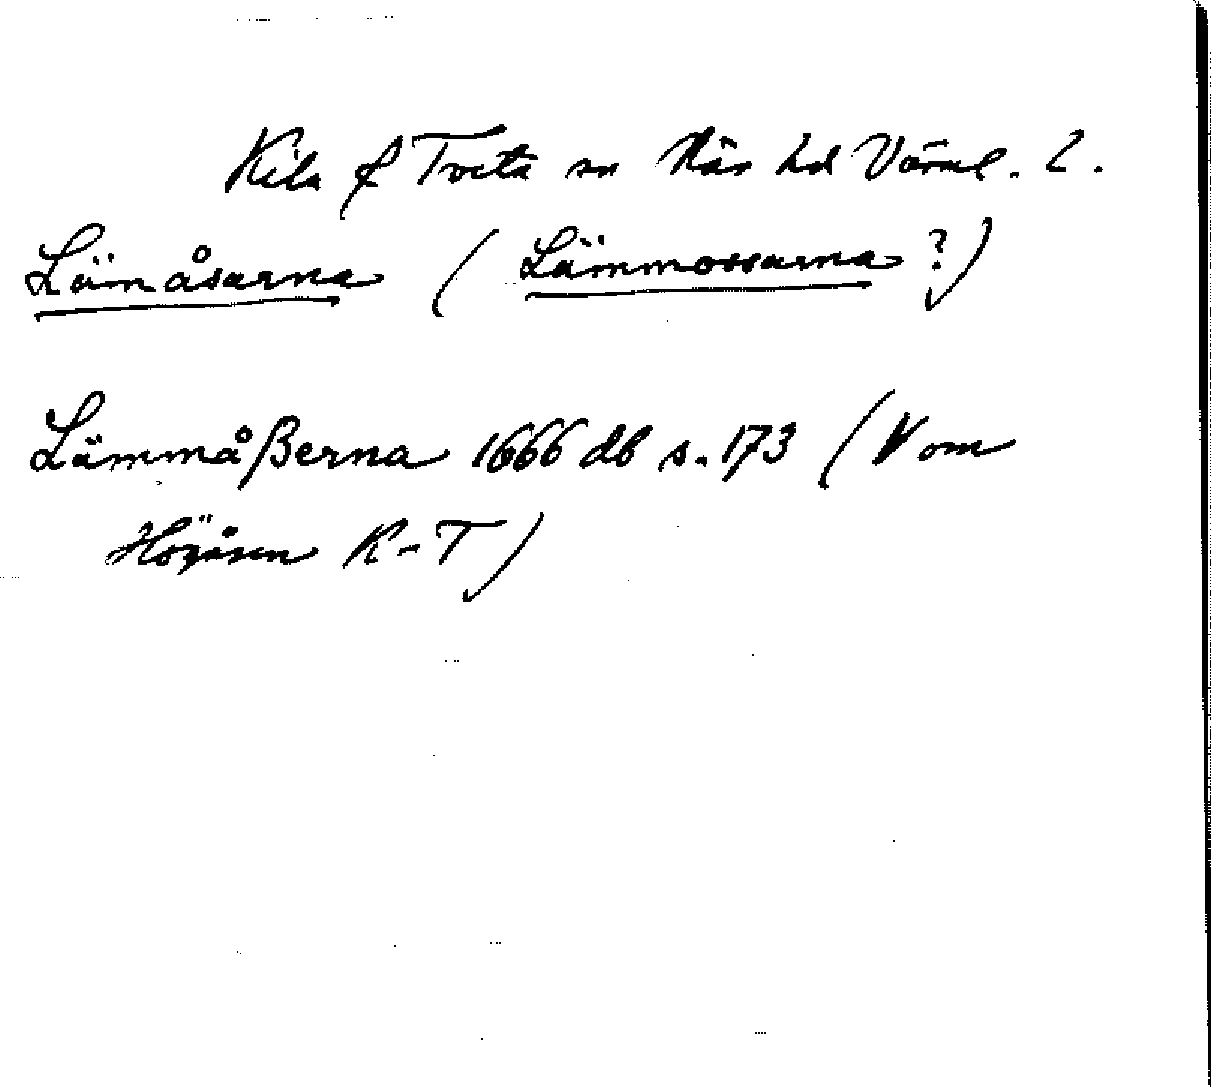 Kila f Tveta sn Näs hd Värml. l.
Lämåsarna (Lämmossarna?)
Lämmåßerna 1666 db s. 173 (V om
Högåsen K-T)